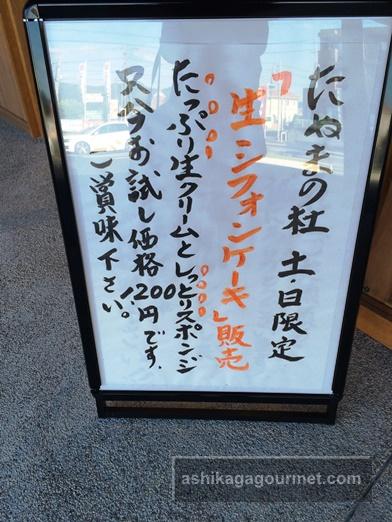 たぬまの杜 土・日限定
「生シフォンケーキ」販売
たっぷり生クリームとしっとりスポンジ
只今お試し価格200円です!
ご賞味下さい。
ashikagagourmet.com